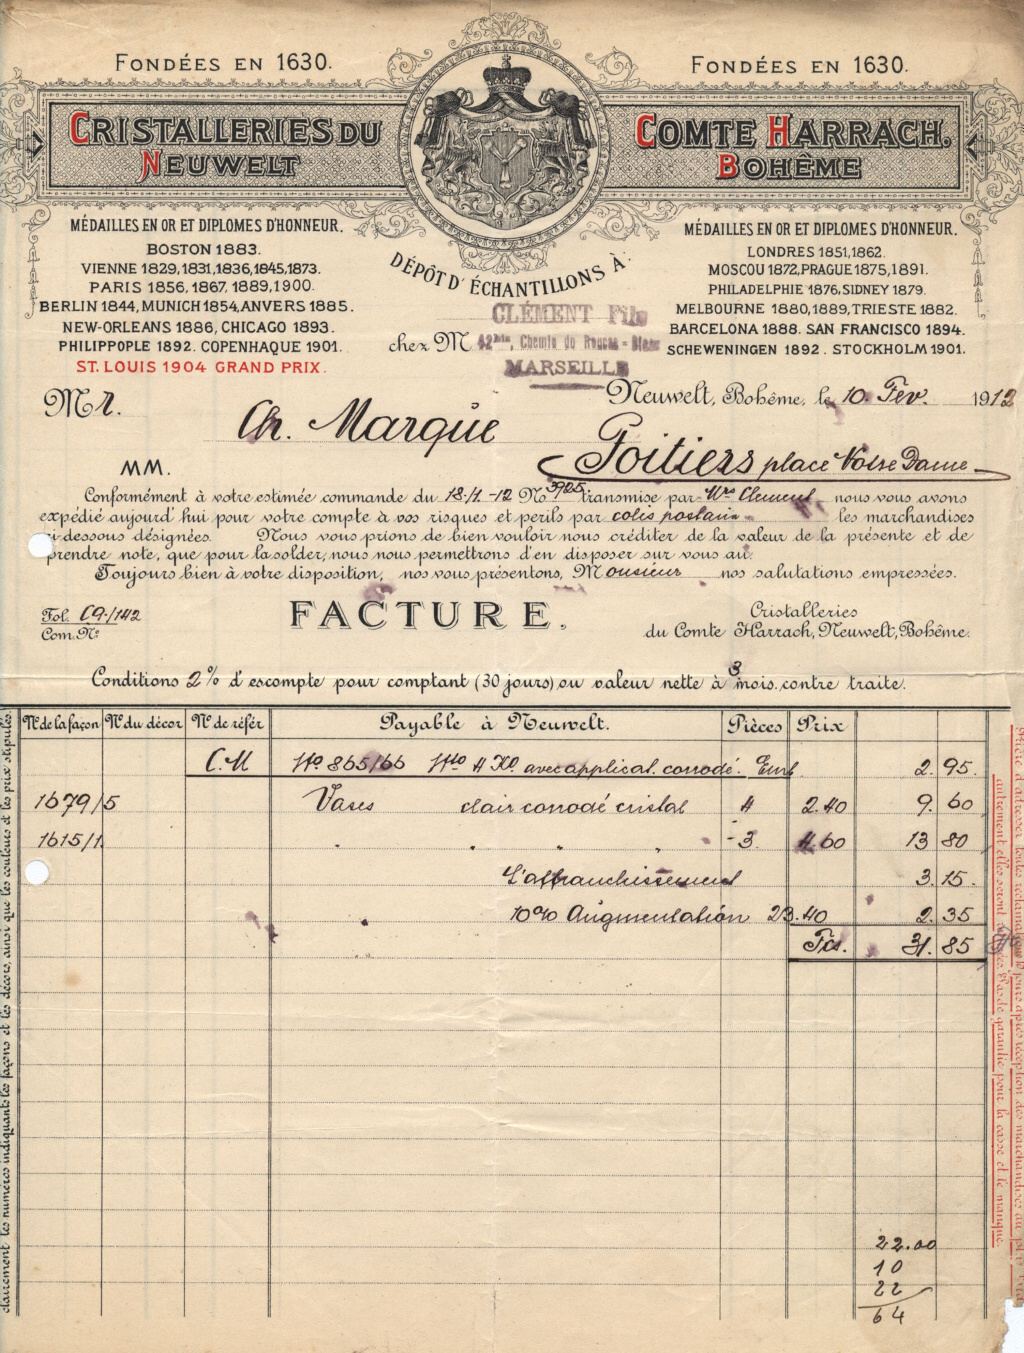 FONDÉES EN 1630.
FONDÉES EN 1630.
CRISTALLERIES DU
NEUWELT
COMTE HARRACH.
BOHÊME
MÉDAILLES EN OR ET DIPLOMES D'HONNEUR.
BOSTON 1883.
VIENNE 1829,1831,1836,1845,1873.
PARIS 1856,1867,1889,1900.
BERLIN 1844, MUNICH 1854, ANVERS 1885.
NEW-ORLEANS 1886, CHICAGO 1893.
PHILIPPOPLE 1892. COPENHAQUE 1901.
ST. LOUIS 1904 GRAND PRIX.
MÉDAILLES EN OR ET DIPLOMES D'HONNEUR.
LONDRES 1851,1862.
MOSCOU 1872, PRAGUE 1875,1891.
PHILADELPHIE 1876, SIDNEY 1879.
MELBOURNE 1880,1889, TRIESTE 1882.
BARCELONA 1888. SAN FRANCISCO 1894.
SCHEWENINGEN 1892. STOCKHOLM 1901.
DÉPÔT D'ÉCHANTILLONS À:
CLÉMENT Fils
chez M 42bis, Chemin du Roucas-Blanc
MARSEILLE
Neuwelt, Bohême, le 10. Fév. 1912
Mr.
Ch. Marque
Poitiers place Notre Dame
MM.
Conformément à votre estimée commande du 18./1.-12 No 3925 transmise par Mrs Clement nous vous avons
expédié aujourd'hui pour votre compte à vos risques et perils par colis postaux les marchandises
ci dessous désignées. Nous vous prions de bien vouloir nous créditer de la valeur de la présente et de
prendre note, que pour la solder, nous nous permettrons d'en disposer sur vous au:
Toujours bien à votre disposition, nos vous présentons, Monsieur nos salutations empressées.
Fol. C9/142
Com. No
FACTURE.
Cristalleries
du Comte Harrach, Neuwelt, Bohême.
Conditions 2% d'escompte pour comptant (30 jours) ou valeur nette à 3 mois, contre traite.
No de la façon No du décor No de référ Payable à Neuwelt. Pièces Prix
C.M No 865/66 avec applicat. corrodé. Emb 2.95.
1679/5 Vases clair corrodé cristal 4 2.40 9.60
1615/1. " " " " 3. 4.60 13 80
L'affranchissement 3.15.
10% Augmentation 23.40 2.35
Fcs. 31.85
22.00
10
22
64
clairement les numéros indiquants les façons et les décors, ainsi que les couleurs et les prix stipulés.
autrement elles seront Pas de garantie pour la casse et le manque.